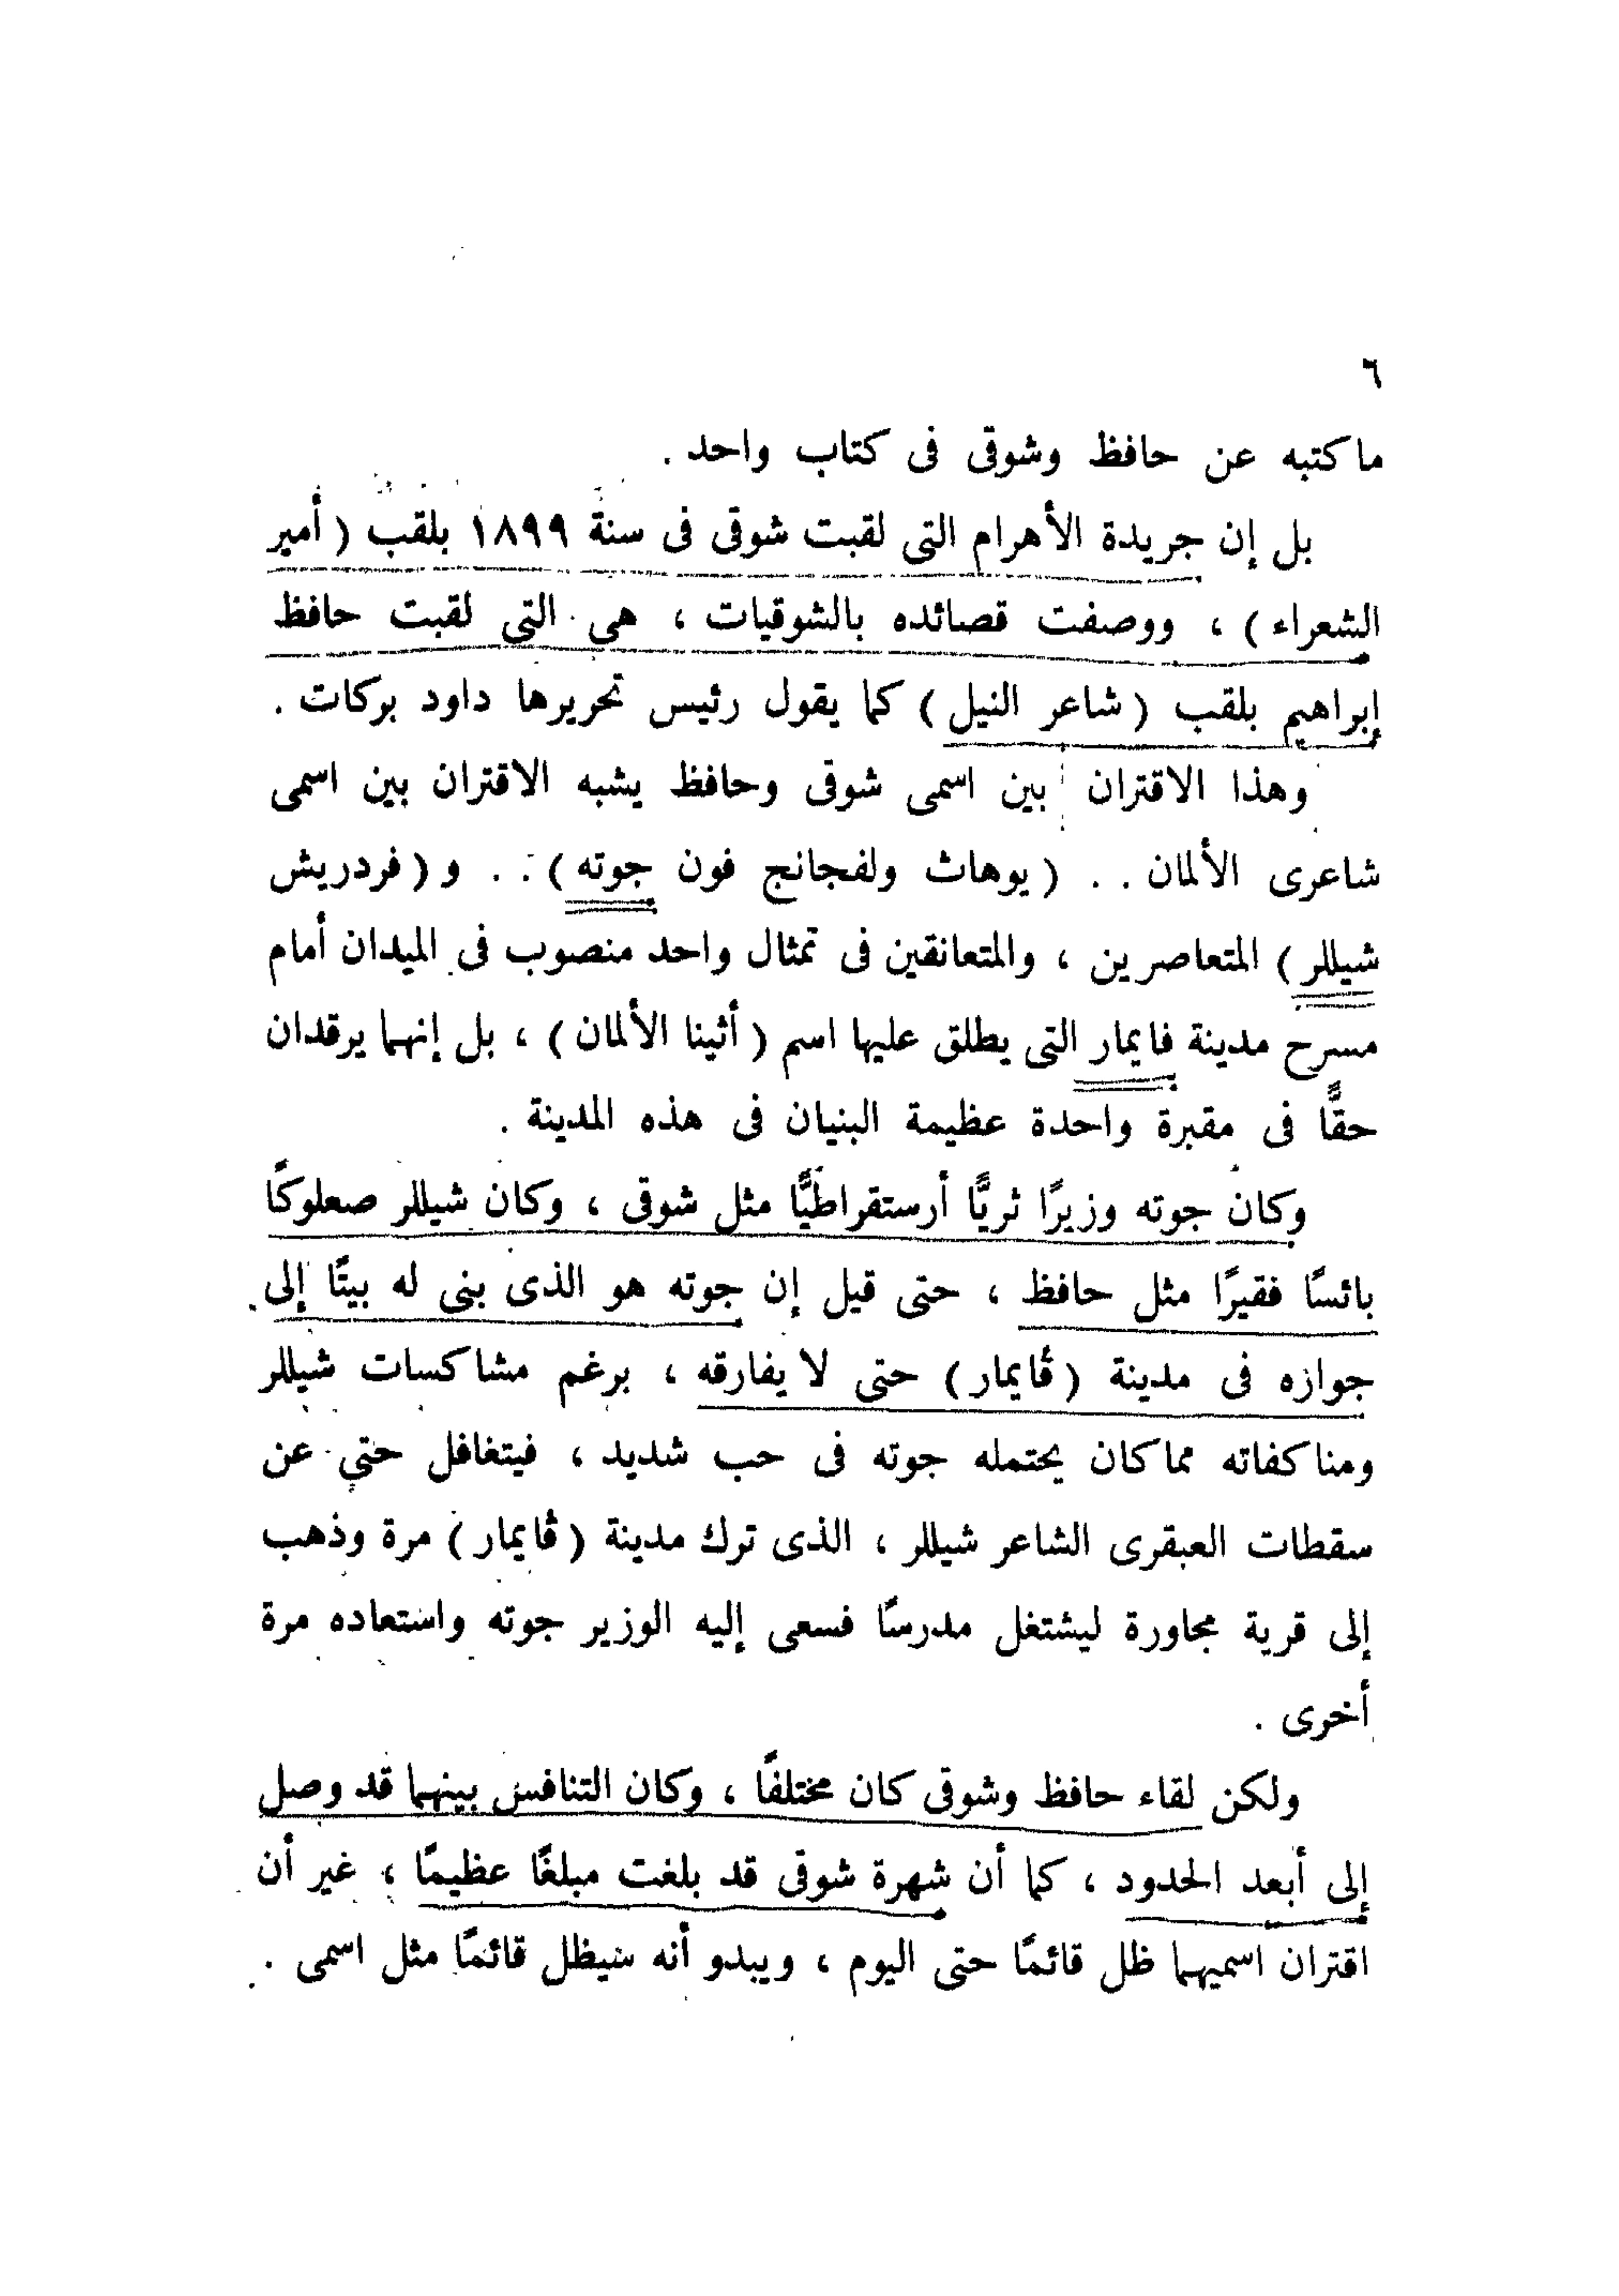 ٦
ماكتبه عن حافظ وشوقى فى كتاب واحد .
بل إن جريدة الأهرام التى لقبت شوقى فى سنة ١٨٩٩ بلقب ( أمير
الشعراء ) ، ووصفت قصائده بالشوقيات ، هى التى لقبت حافظ
إبراهيم بلقب ( شاعر النيل ) كما يقول رئيس تحريرها داود بركات .
وهذا الاقتران بين اسمى شوقى وحافظ يشبه الاقتران بين اسمى
شاعرى الألمان . . ( يوهاث ولفجانج فون جوته ) . . و ( فردريش
شيللر ) المتعاصرين ، والمتعانقين فى تمثال واحد منصوب فى الميدان أمام
مسرح مدينة فايمار التى يطلق عليها اسم ( أثينا الألمان ) ، بل إنهما يرقدان
حقًّا فى مقبرة واحدة عظيمة البنيان فى هذه المدينة .
وكان جوته وزيرًا ثريًّا أرستقراطيًّا مثل شوقى ، وكان شيللر صعلوكًا
بائسًا فقيرًا مثل حافظ ، حتى قيل إن جوته هو الذى بنى له بيتًا إلى
جوازه فى مدينة ( ڤايمار ) حتى لا يفارقه ، برغم مشاكسات شيللر
ومناكفاته مماكان يحتمله جوته فى حب شديد ، فيتغافل حتى عن
سقطات العبقرى الشاعر شيللر ، الذى ترك مدينة ( ڤايمار ) مرة وذهب
إلى قرية مجاورة ليشتغل مدرسًا فسعى إليه الوزير جوته واستعاده مرة
أخرى .
ولكن لقاء حافظ وشوقى كان مختلفًا ، وكان التنافس بينهما قد وصل
إلى أبعد الحدود ، كما أن شهرة شوقى قد بلغت مبلغًا عظيمًا ، غير أن
اقتران اسميهما ظل قائمًا حتى اليوم ، ويبدو أنه سيظل قائمًا مثل اسمى .